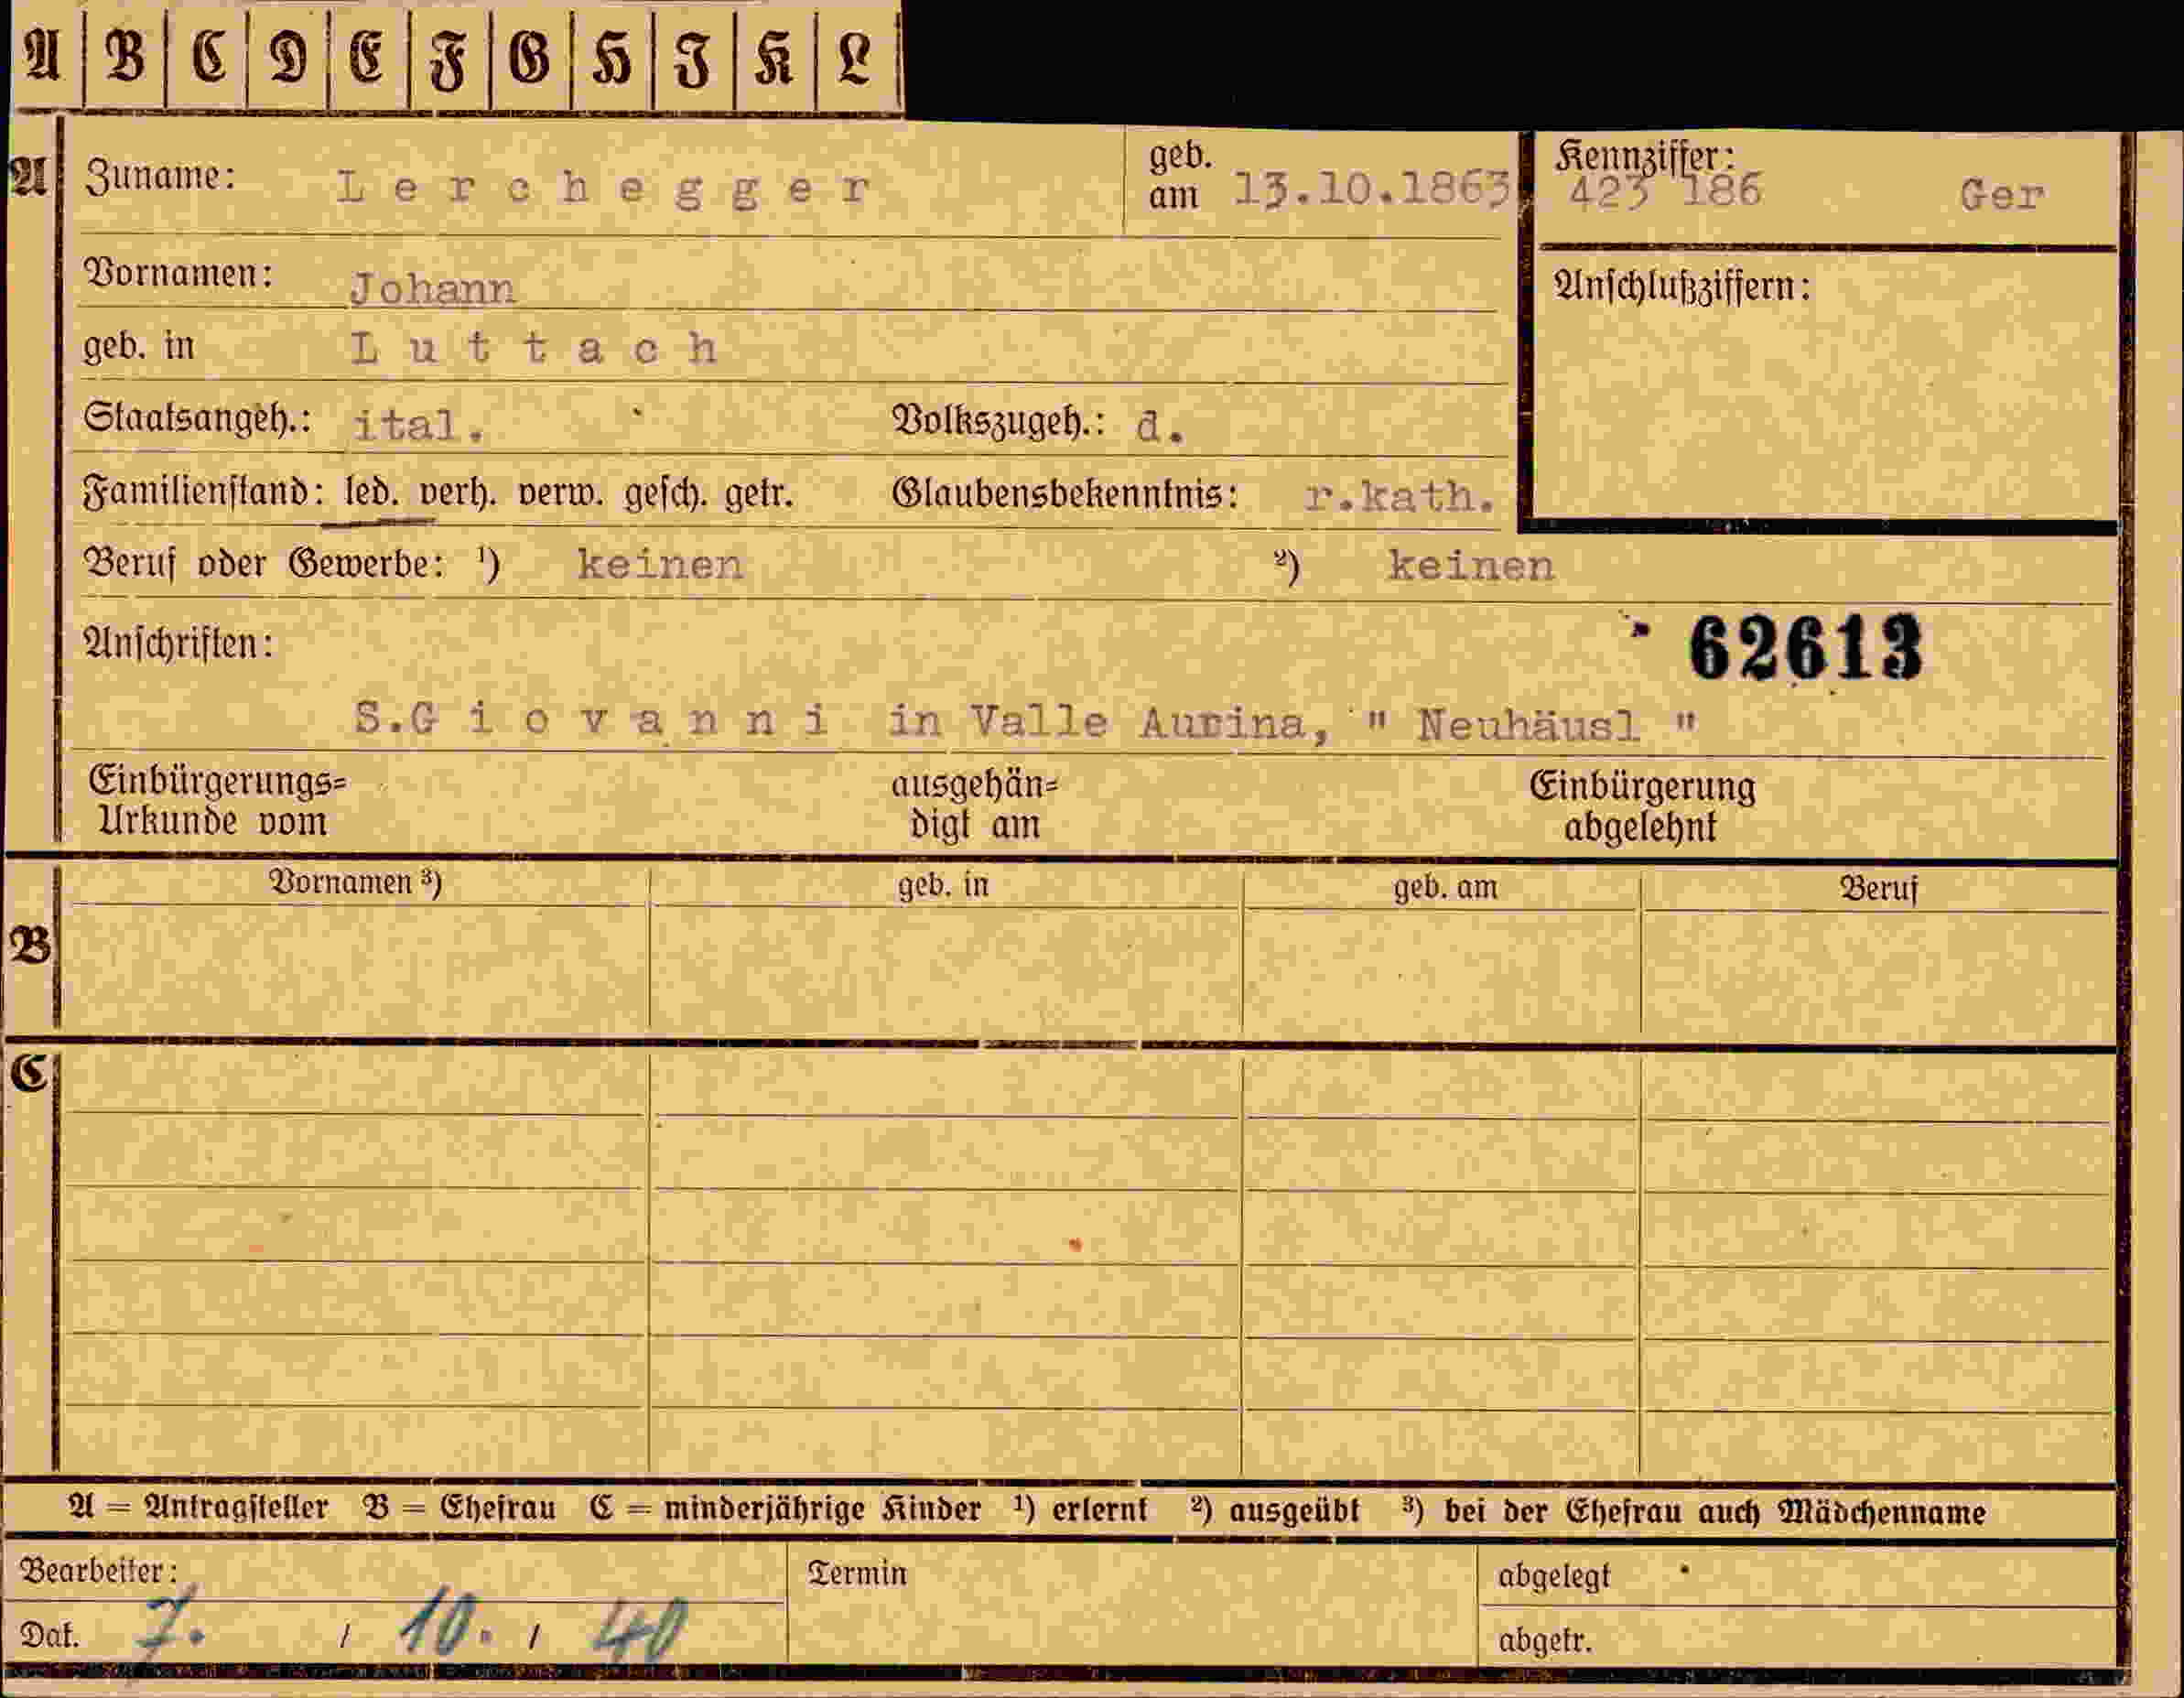 A B C D E F G H I K L
A Zuname: Lerchegger geb. am 13.10.1863 Kennziffer: 423 186 Ger
Vornamen: Johann Anschlußziffern:
geb. in Luttach
Staatsangeh.: ital. Volkszugeh.: d.
Familienstand: led. verh. verw. gesch. getr. Glaubensbekenntnis: r.kath.
Beruf oder Gewerbe: ¹) keinen ²) keinen
Anschriften: 62613
S.Giovanni in Valle Aurina, " Neuhäusl "
Einbürgerungs= ausgehän= Einbürgerung
Urkunde vom digt am abgelehnt
Vornamen ³) geb. in geb. am Beruf
B
C
A = Antragsteller B = Ehefrau C = minderjährige Kinder ¹) erlernt ²) ausgeübt ³) bei der Ehefrau auch Mädchenname
Bearbeiter: Termin abgelegt
Dat. 7. / 10. / 40 abgetr.